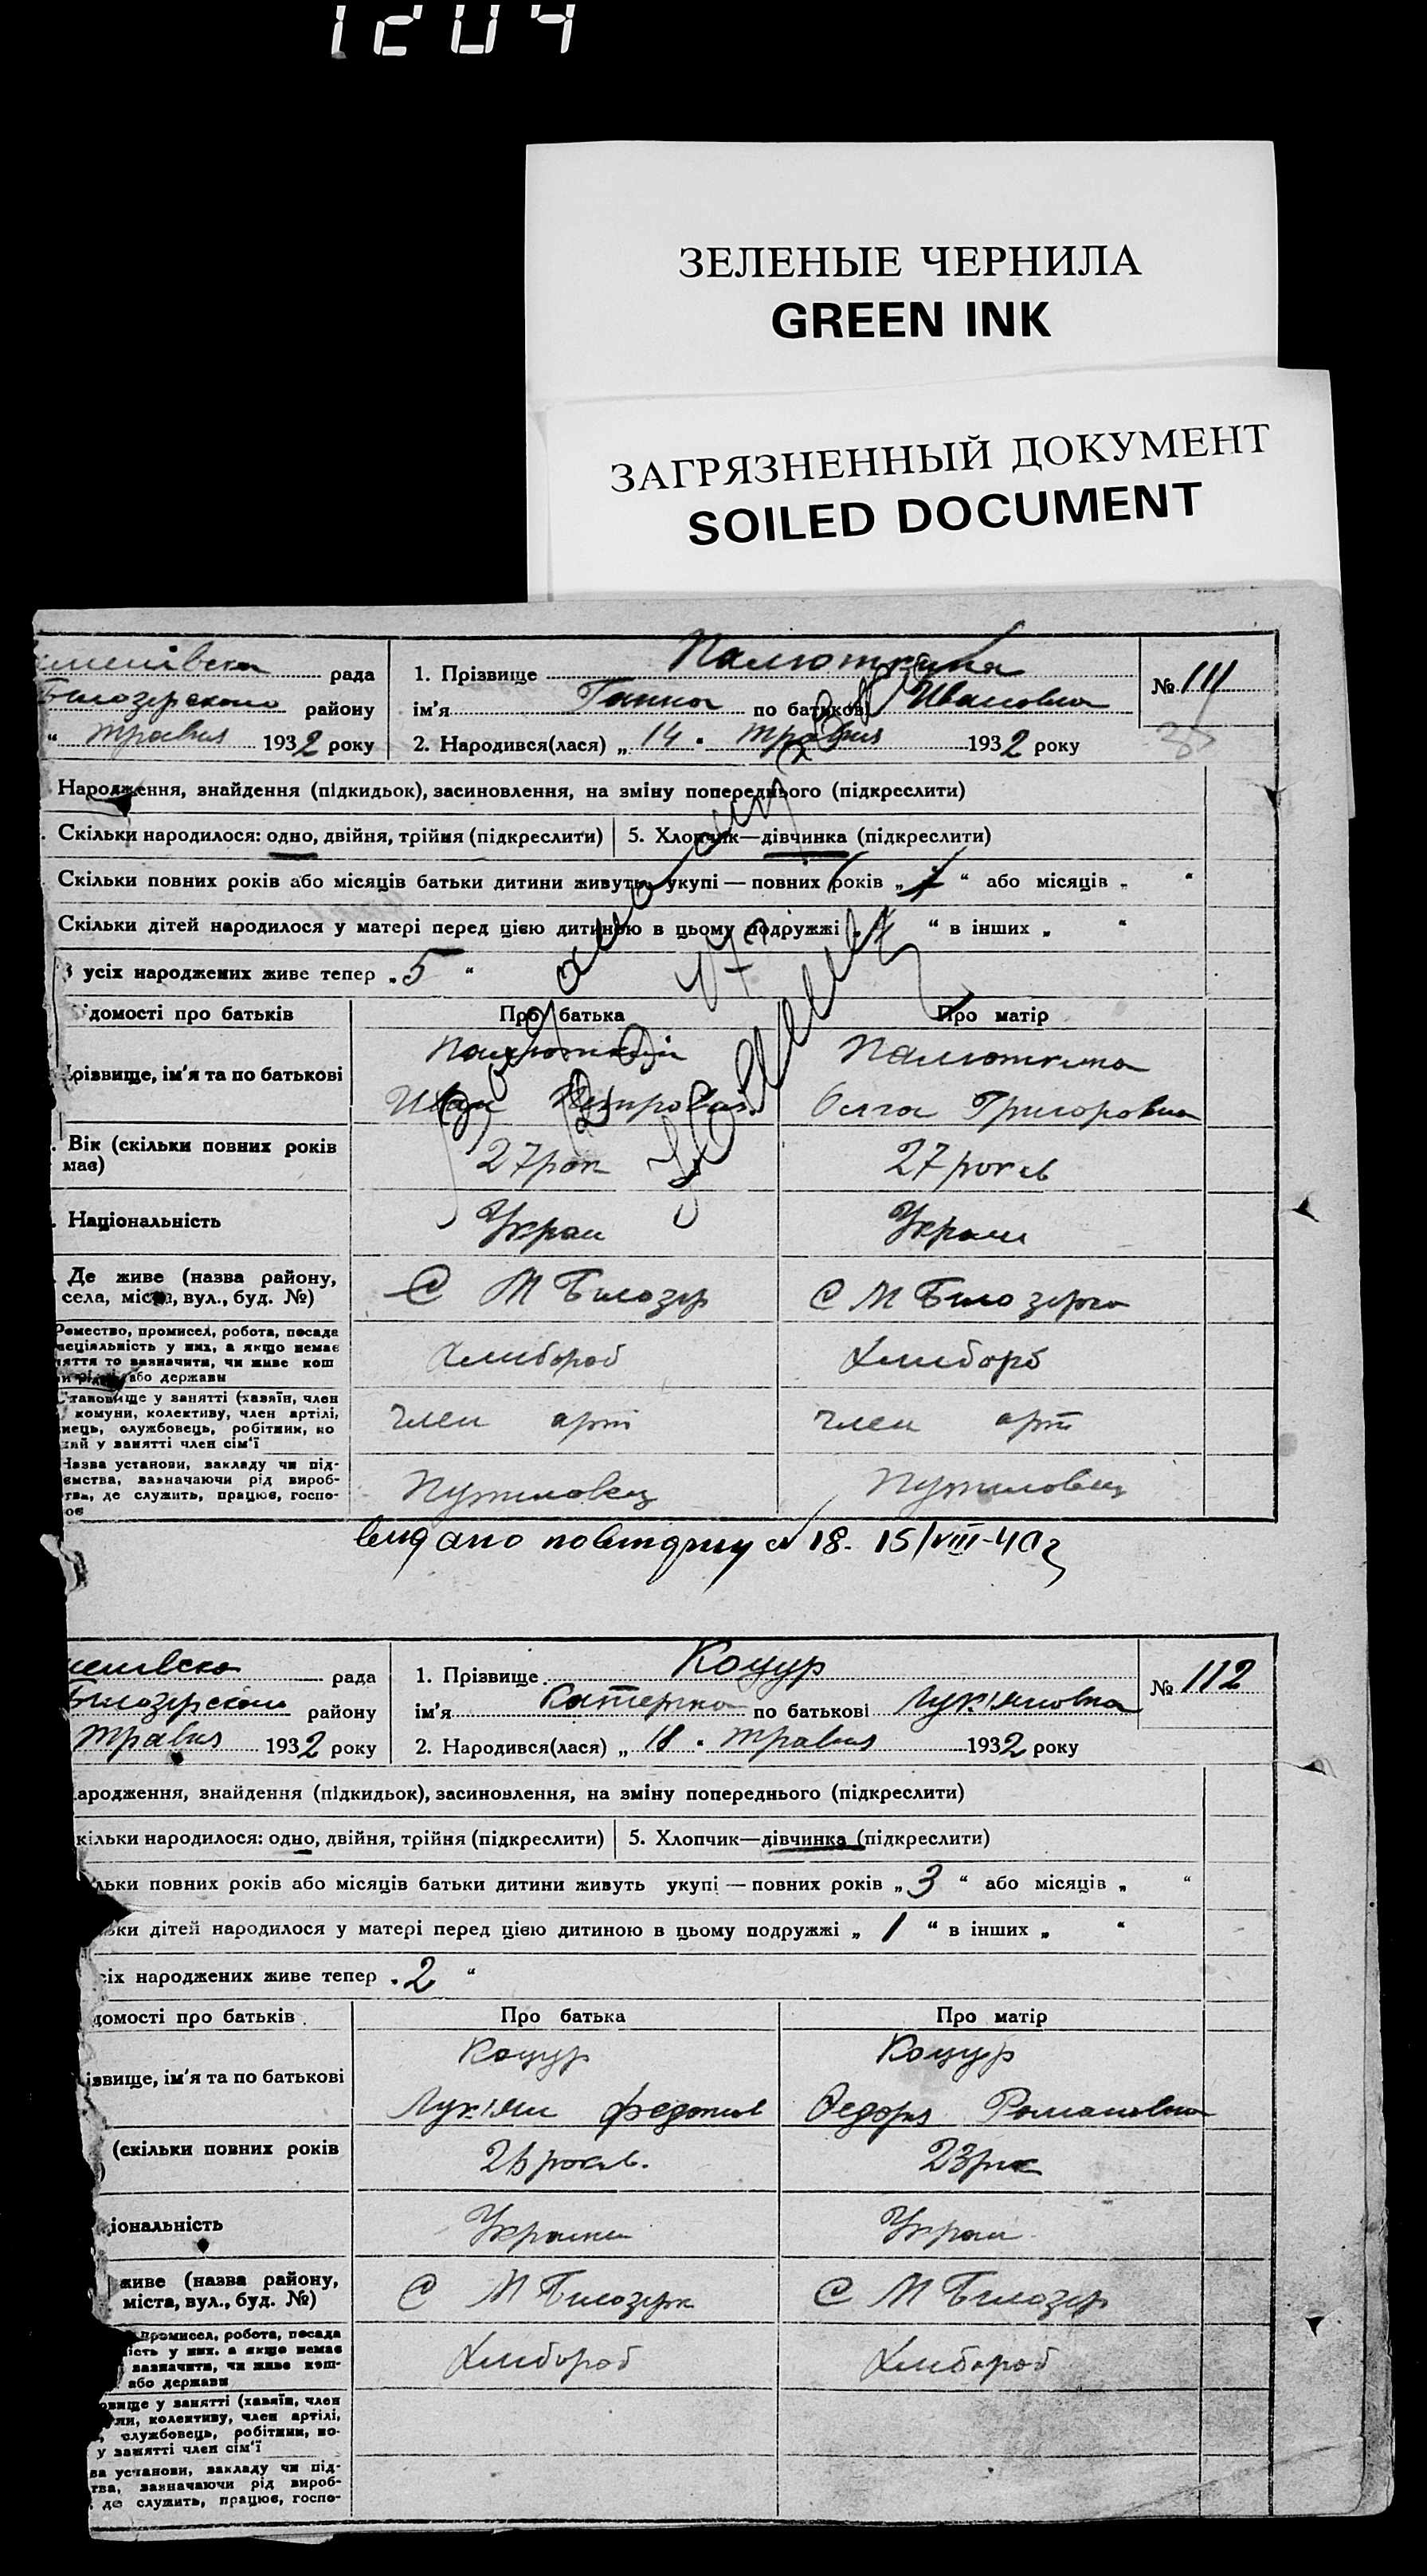 1204
ЗЕЛЕНЫЕ ЧЕРНИЛА
GREEN INK
ЗАГРЯЗНЕННЫЙ ДОКУМЕНТ
SOILED DOCUMENT
рада
1. Прізвище
№ 111
Билозерского району
ім'я Ганна по батькові Ивановна
травня 1932 року
2. Народився(лася) „ 14 " травня 1932 року
Народження, знайдення (підкидьок), засиновлення, на зміну попереднього (підкреслити)
Скільки народилося: одно, двійня, трійня (підкреслити)
5. Хлопчик—дівчинка (підкреслити)
Скільки повних років або місяців батьки дитини живуть укупі — повних років „ “ або місяців „ “
Скільки дітей народилося у матері перед цією дитиною в цьому подружжі „ 4 “ в інших „ “
З усіх народжених живе тепер „ 5 “
домості про батьків
Про батька
Про матір
різвище, ім'я та по батькові
Иван Петрович
Олга Григоровна
Вік (скільки повних років має)
27 рок
27 років
Національність
Украи
Украи
Де живе (назва району, села, міста, вул., буд. №)
С М Билозер
С М Билозерка
Ремество, промисел, робота, посада
пеціяльність у них, а якщо немає
няття то вазначити, чи живе кош
або держави
Хлибороб
Хлибороб
Становище у занятті (хазяїн, член
комуни, колективу, член артілі,
нець, службовець, робітник, по
у занятті член сім'ї
член арт
член арт
Назва установи, закладу чи під-
ємства, зазначаючи рід вироб-
тва, де служить, працює, госпо-
ює
Путиловец
Путиловец
видано 18. 15/VIII-40г
рада
1. Прізвище Коцур
№ 112
Билозерского району
ім'я Катерина по батькові Лук'яновна
травня 1932 року
2. Народився(лася) „ 18 " травня 1932 року
ародження, знайдення (підкидьок), засиновлення, на зміну попереднього (підкреслити)
кільки народилося: одно, двійня, трійня (підкреслити)
5. Хлопчик—дівчинка (підкреслити)
льки повних років або місяців батьки дитини живуть укупі — повних років „ 3 “ або місяців „ “
ьки дітей народилося у матері перед цією дитиною в цьому подружжі „ 1 “ в інших „ “
сіх народжених живе тепер „ 2 “
домості про батьків
Про батька
Про матір
ізвище, ім'я та по батькові
Коцур
Коцур
Лук'ян
Федора Романовна
(скільки повних років
років.
23 рок
іональність
Украин
Украи
живе (назва району,
міста, вул., буд. №)
С М Билозерк
С М Билозер
промисел, робота, посада
ність у них, а якщо немає
вазначити, чи живе кош-
або держави
Хлибороб
Хлибороб
овище у занятті (хазяїн, член
уни, колективу, член артілі,
службовець, робітник, по-
у занятті член сім'ї
ва установи, закладу чи під-
тва, зазначаючи рід вироб-
де служить, працює, госпо-